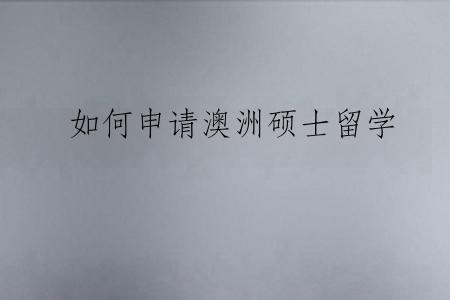 如何申请澳洲硕士留学